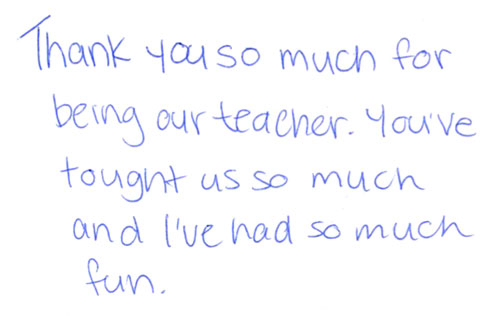 Thank you so much for
being our teacher. You've
tought us so much
and I've had so much
fun.